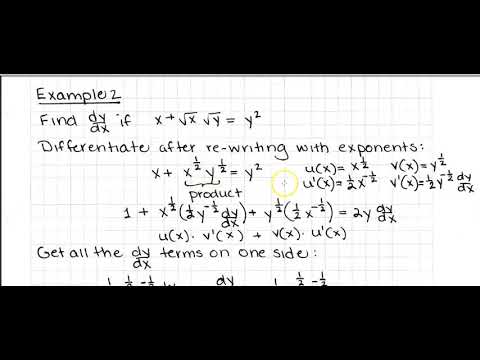 Example 2
Find dy/dx if x + √x √y = y²
Differentiate after re-writing with exponents:
x + x^½ y^½ = y² u(x) = x^½ v(x) = y^½
product u'(x) = ½x^-½ v'(x) = ½y^-½ dy/dx
1 + x^½(½y^-½ dy/dx) + y^½(½x^-½) = 2y dy/dx
u(x) · v'(x) + v(x) · u'(x)
Get all the dy/dx terms on one side: